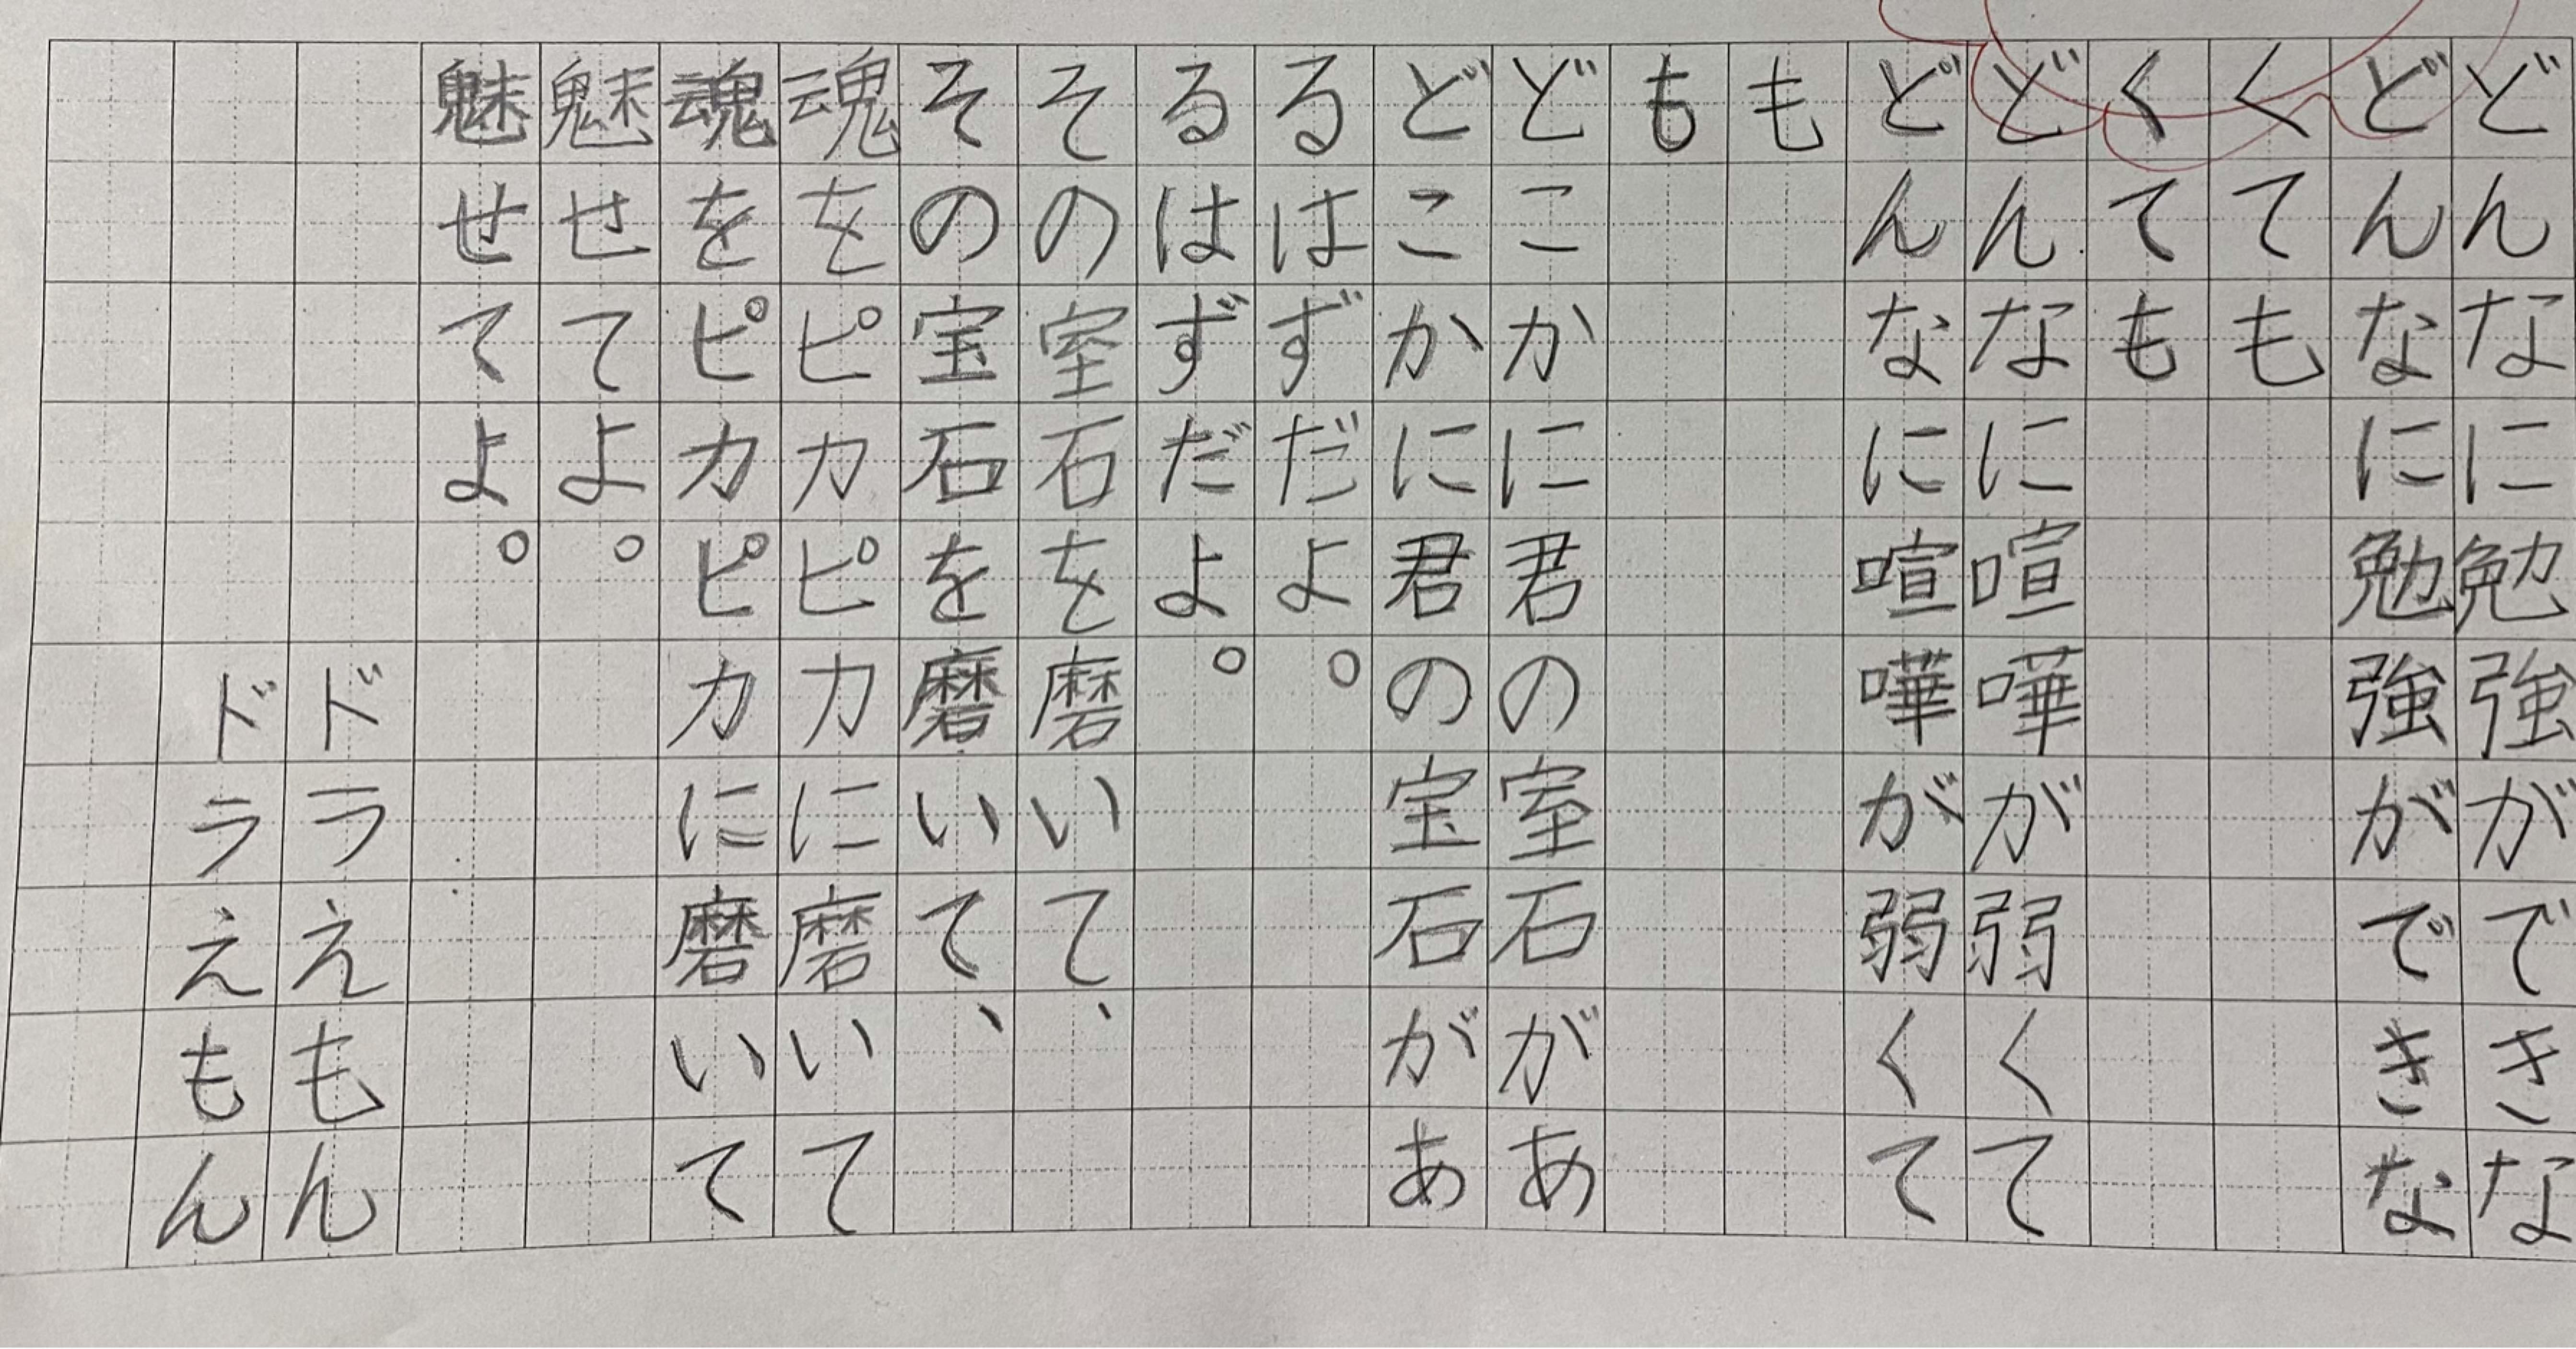 どんなに勉強ができな
どんなに勉強ができな
くても
くても
どんなに喧嘩が弱くて
どんなに喧嘩が弱くて
も
も
どこかに君の室石があ
どこかに君の宝石があ
るはずだよ。
るはずだよ。
その室石を磨いて、
その宝石を磨いて、
魂をピカピカに磨いて
魂をピカピカに磨いて
魅せてよ。
魅せてよ。
ドラえもん
ドラえもん